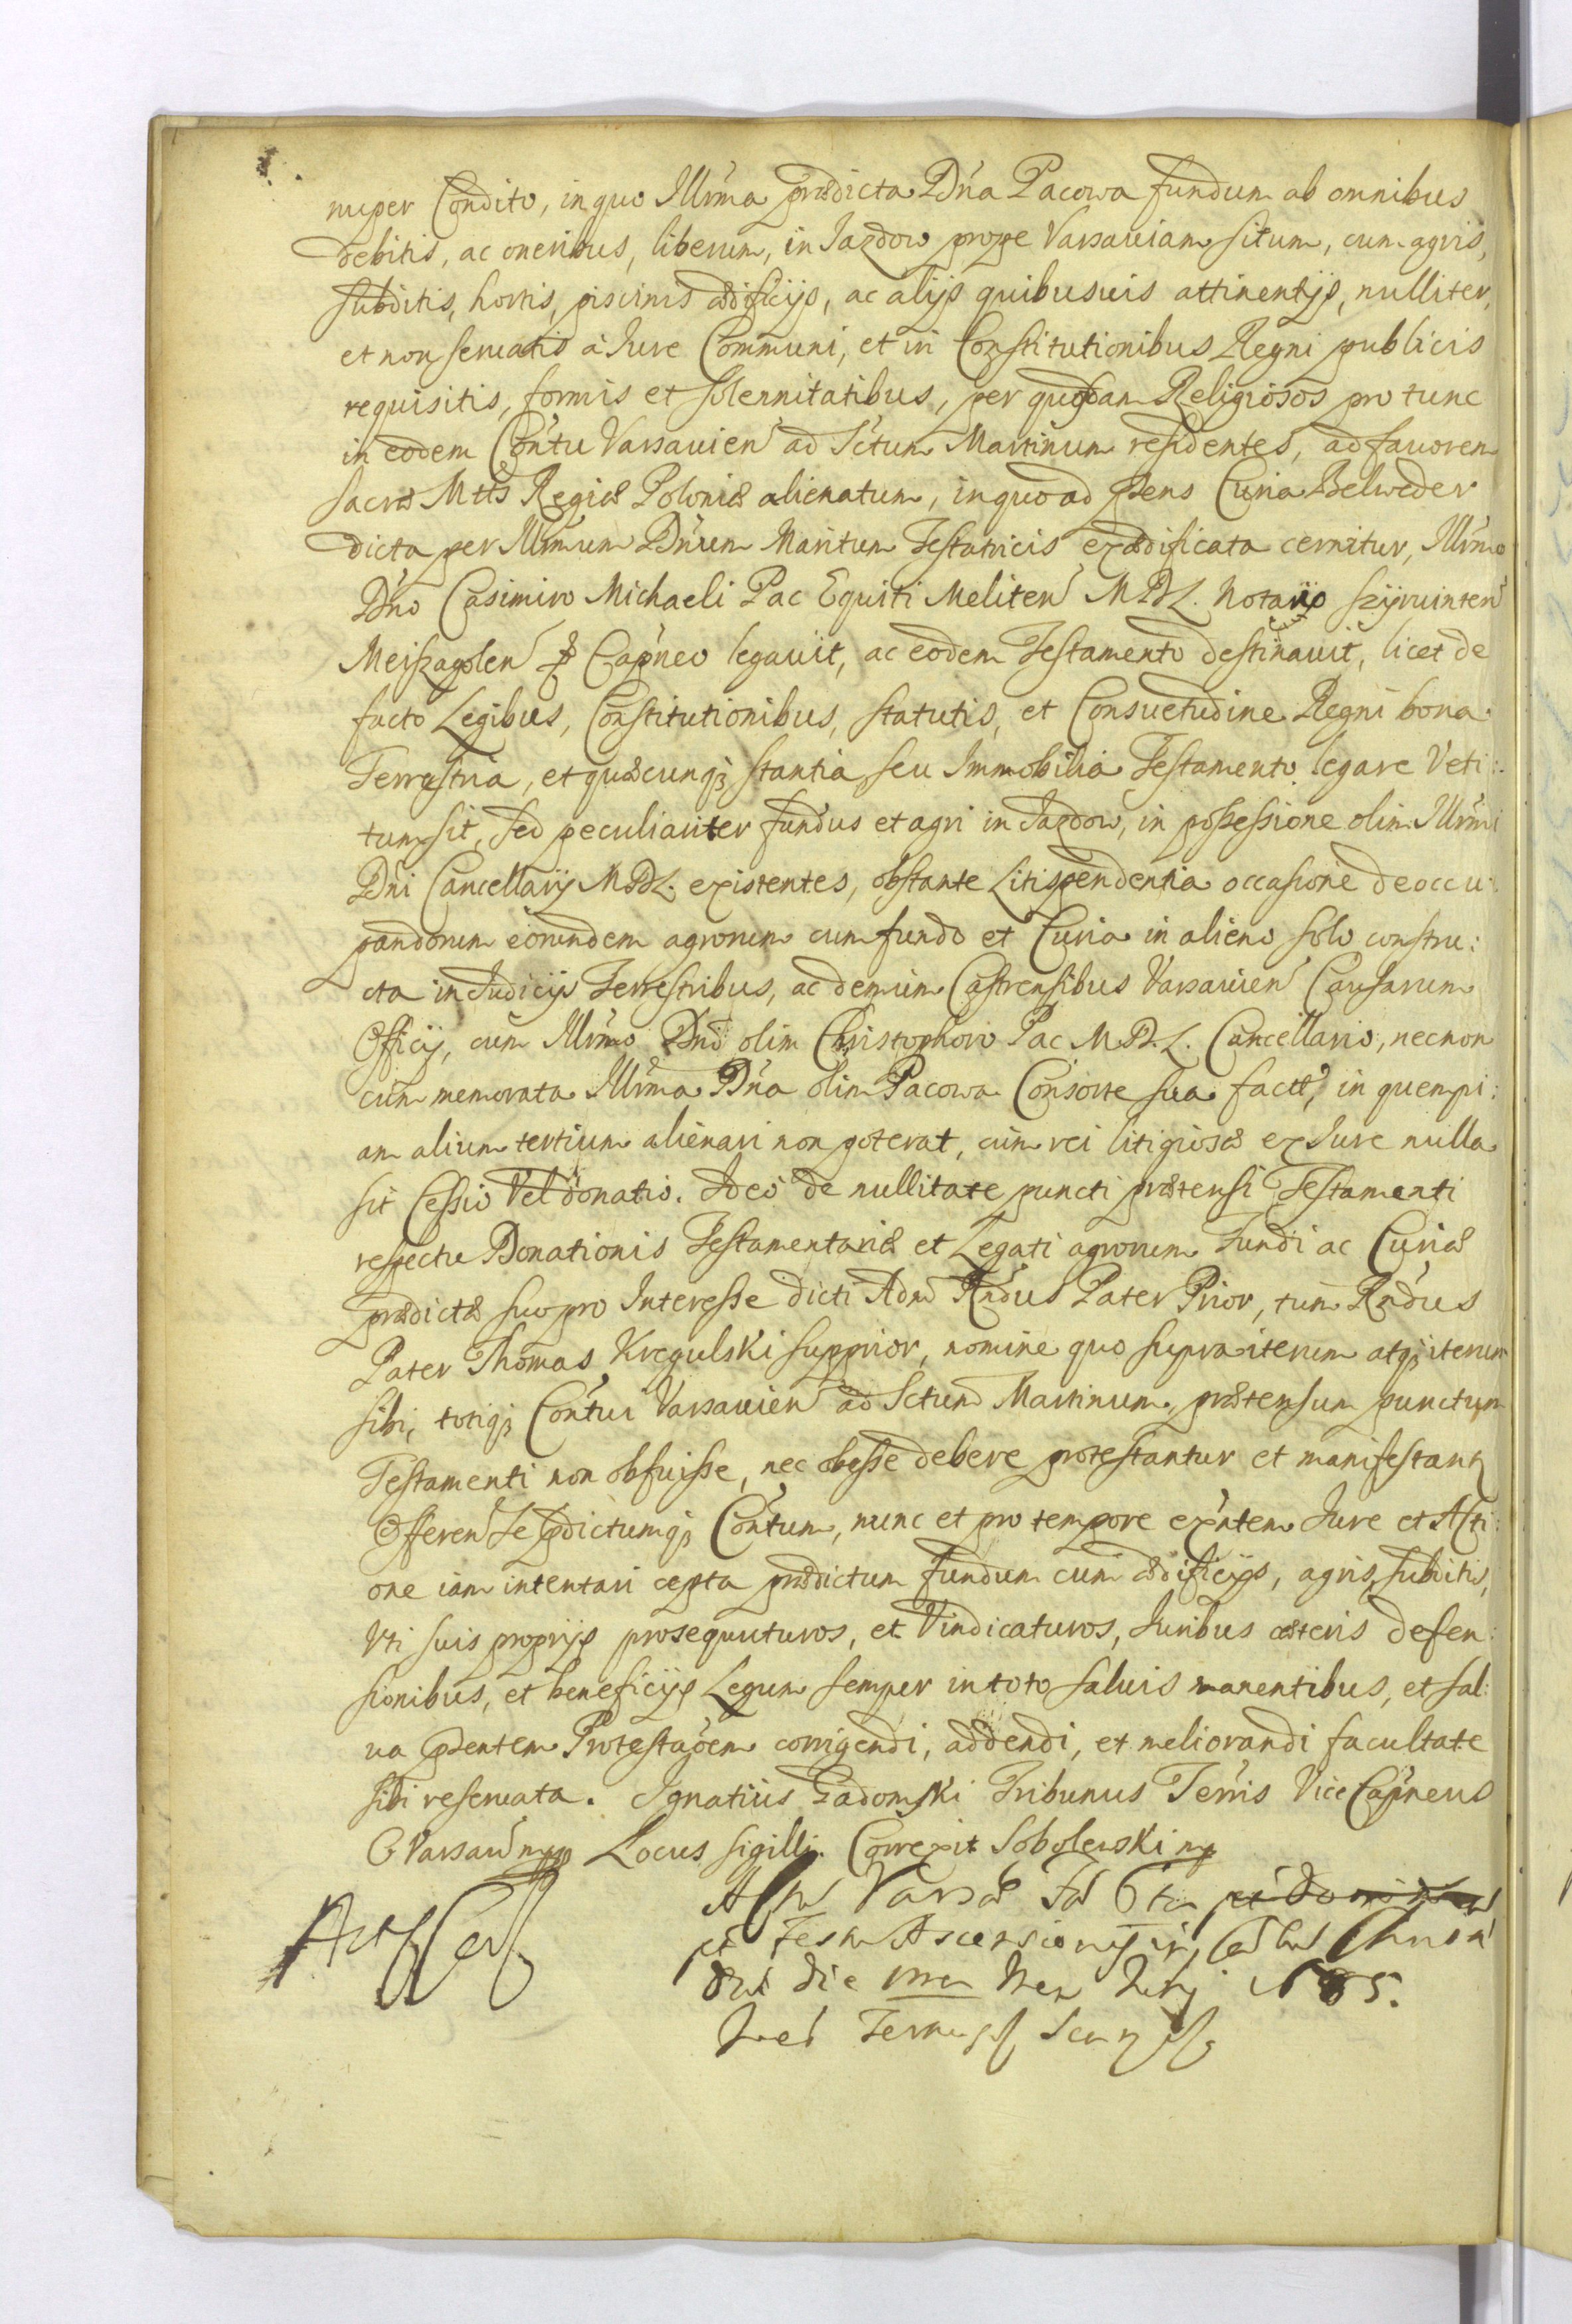 nuper Condito, in quo Illrma prædicta Dña Pacowa fundum ab omnibus
debitis, ac oneribus, liberum, in Jazdow prope Varsauiam situm, cum agris,
subditis, hortis, piscinis ædificijs, ac alijs quibusuis attinentijs, nulliter,
et non seruatis à Iure Communi, et in Constitutionibus Regni publicis
requisitis, formis et solennitatibus, per quosdam Religiosos pro tunc
in eodem Contu Varsauien ad Sctum Martinum residentes, ad fauorem
sacræ Mttis Regiæ Poloniæ alienatum, in quo ad pñs Curia Belweder
dicta per Illrmum Dñum Maritum Testatricis exædificata cernitur, Illrmo
Dño Casimiro Michaeli Pac Equiti Meliten M.D.L. Notario Szyrwinten
Meiszagolen & Capneo legauit, ac eodem Testamento destinauit, licet de
facto Legibus, Constitutionibus, statutis, et Consuetudine Regni bona
Terrestria, et quæcunq; stantia, seu Immobilia Testamento legare Veti:
tum sit, Sed peculiariter fundus et agri in Jazdow, in possessione olim Illrmi
Dñi Cancellarij M.D.L. existentes, obstante Litispendentia occasione de occu:
pandorum eorundem agrorum cum fundo et Curia in alieno solo constru:
cta in Judicijs Terrestribus, ac demum Castrensibus Varsauien Causarum
Officij, cum Illrmo Dño olim Christophoro Pac M.D.L. Cancellario, necnon
cum memorata Illrma Dña olim Pacowa Consorte sua fact, in quempi:
am alium tertium alienari non poterat, cum rei litigiosæ ex Iure nulla
sit Cessio Vel donatio. Ideò de nullitate puncti prætensi Testamenti
respectu Donationis Testamentariæ et Legati agrorum Fundi ac Curiæ
prædictæ suo pro Interesse dicti Adm Rndus Pater Prior, tum Rndus
Pater Thomas Kregulski supprior, nomine quo supra iterum atq; iterum
sibi, totiq; Contui Varsauien ad Sctum Martinum, prætensum punctum
Testamenti non obfuisse, nec obesse debere protestantur et manifestant
Offeren se pdictumq; Contum, nunc et pro tempore exntem Iure et Acti:
one iam intentari cepta prædictum fundum cum ædificijs, agris, subditis,
Vti suis proprijs prosequuturos, et Vindicaturos, Iuribus cæteris defen:
sionibus, et beneficijs Legum semper in toto saluis manentibus, et sal:
ua pñtem Protestaoem corrigendi, addendi, et meliorandi facultate
sibi reseruata. Ignatius Gadomski Tribunus Terris Vice Capneus
C Varsau mp Locus sigilli. Correxit Sobolewski mp
Varsa
Festu Ascensionis
die